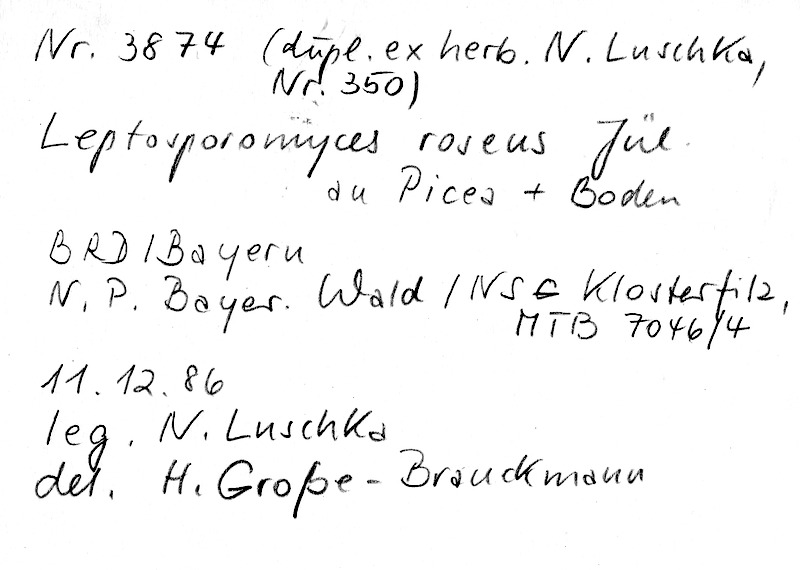 Nr. 3874 (dupl. ex herb. N. Luschka,
Nr. 350)
Leptosporomyces roseus Jül.
au Picea + Boden
BRD/Bayern
N. P. Bayer. Wald / NSG Klosterfilz,
MTB 7046/4
11.12.86
leg. N. Luschka
det. H. Große-Brauckmann